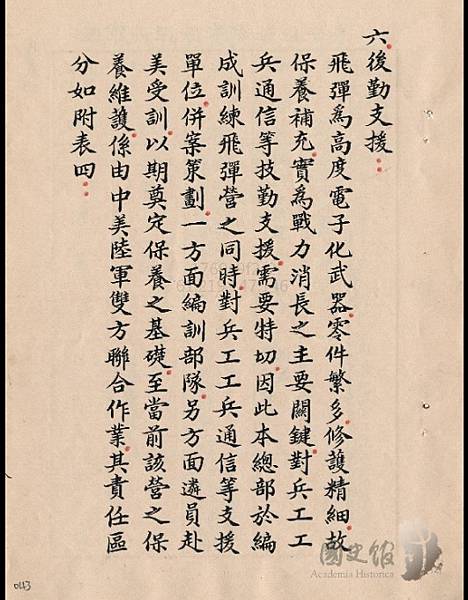 六、後勤支援：
飛彈為高度電子化武器、零件繁多、修護精細、故
保養補充、實為戰力消長之主要關鍵、對兵工工
兵通信等技勤支援、需要特切、因此本總部於編
成訓練飛彈營之同特、對兵工工兵通信等支援
單位、併案策劃、一方面編訓部隊、另方面遴員赴
美受訓、以期奠定保養之基礎、至當前該營之保
養維護、係由中美陸軍雙方聯合作業、其責任區
分如附表四：
國史館
Academia Historica
0113